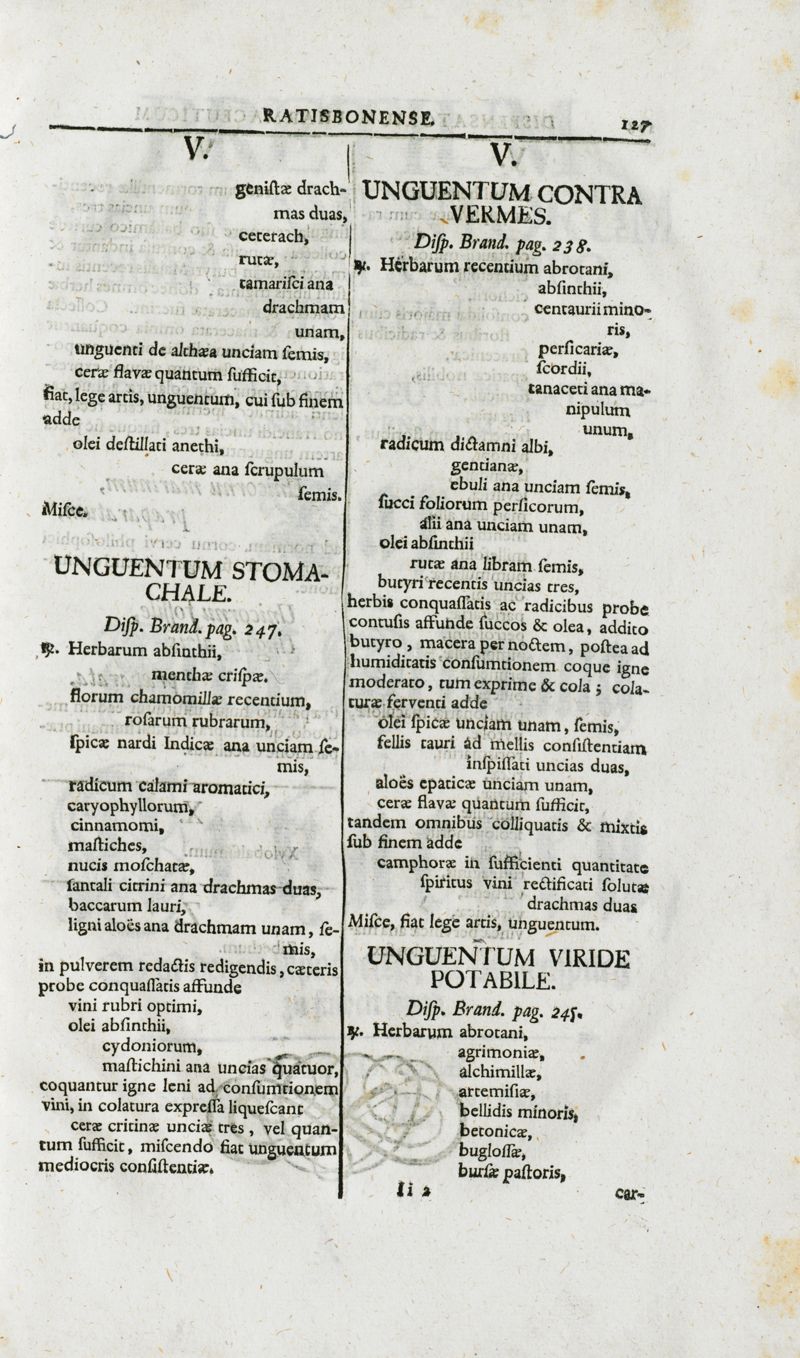 RATISBONENSE.
127
V.
geniſtæ drach-
mas duas,
ceterach,
rutæ,
tamariſci ana
drachmam
unam,
unguenti de althæa unciam ſemis,
ceræ flavæ quantum ſufficit,
fiat, lege artis, unguentum, cui ſub finem
adde
olei deſtillati anethi,
ceræ ana ſcrupulum
ſemis.
Miſce.
UNGUENTUM STOMA-
CHALE.
Diſp. Brand. pag. 247.
℞. Herbarum abſinthii,
menthæ criſpæ.
florum chamomillæ recentium,
roſarum rubrarum,
ſpicæ nardi Indicæ ana unciam ſe-
mis,
radicum calami aromatici,
caryophyllorum,
cinnamomi,
maſtiches,
nucis moſchatæ,
ſantali citrini ana drachmas duas,
baccarum lauri,
ligni aloës ana drachmam unam, ſe-
mis,
in pulverem redactis redigendis, cæteris
probe conquaſſatis affunde
vini rubri optimi,
olei abſinthii,
cydoniorum,
maſtichini ana uncias quatuor,
coquantur igne leni ad conſumtionem
vini, in colatura expreſſa liqueſcant
ceræ critinæ unciæ tres, vel quan-
tum ſufficit, miſcendo fiat unguentum
mediocris conſiſtentiæ.
V.
UNGUENTUM CONTRA
VERMES.
Diſp. Brand. pag. 238.
℞. Herbarum recentium abrotani,
abſinthii,
centaurii mino-
ris,
perſicariæ,
ſcordii,
tanaceti ana ma-
nipulum
unum,
radicum dictamni albi,
gentianæ,
ebuli ana unciam ſemis,
ſucci foliorum perſicorum,
alii ana unciam unam,
olei abſinthii
rutæ ana libram ſemis,
butyri recentis uncias tres,
herbis conquaſſatis ac radicibus probe
contuſis affunde ſuccos & olea, addito
butyro, macera per noctem, poſtea ad
humiditatis conſumtionem coque igne
moderato, tum exprime & cola; cola-
turæ ferventi adde
olei ſpicæ unciam unam, ſemis,
fellis tauri ad mellis conſiſtentiam
inſpiſſati uncias duas,
aloës epaticæ unciam unam,
ceræ flavæ quantum ſufficit,
tandem omnibus colliquatis & mixtis
ſub finem adde
camphoræ in ſufficienti quantitate
ſpiritus vini rectificati ſolutæ
drachmas duas
Miſce, fiat lege artis, unguentum.
UNGUENTUM VIRIDE
POTABILE.
Diſp. Brand. pag. 245.
℞. Herbarum abrotani,
agrimoniæ,
alchimillæ,
artemiſiæ,
bellidis minoris,
betonicæ,
bugloſſæ,
burſæ paſtoris,
Ii 2
car-